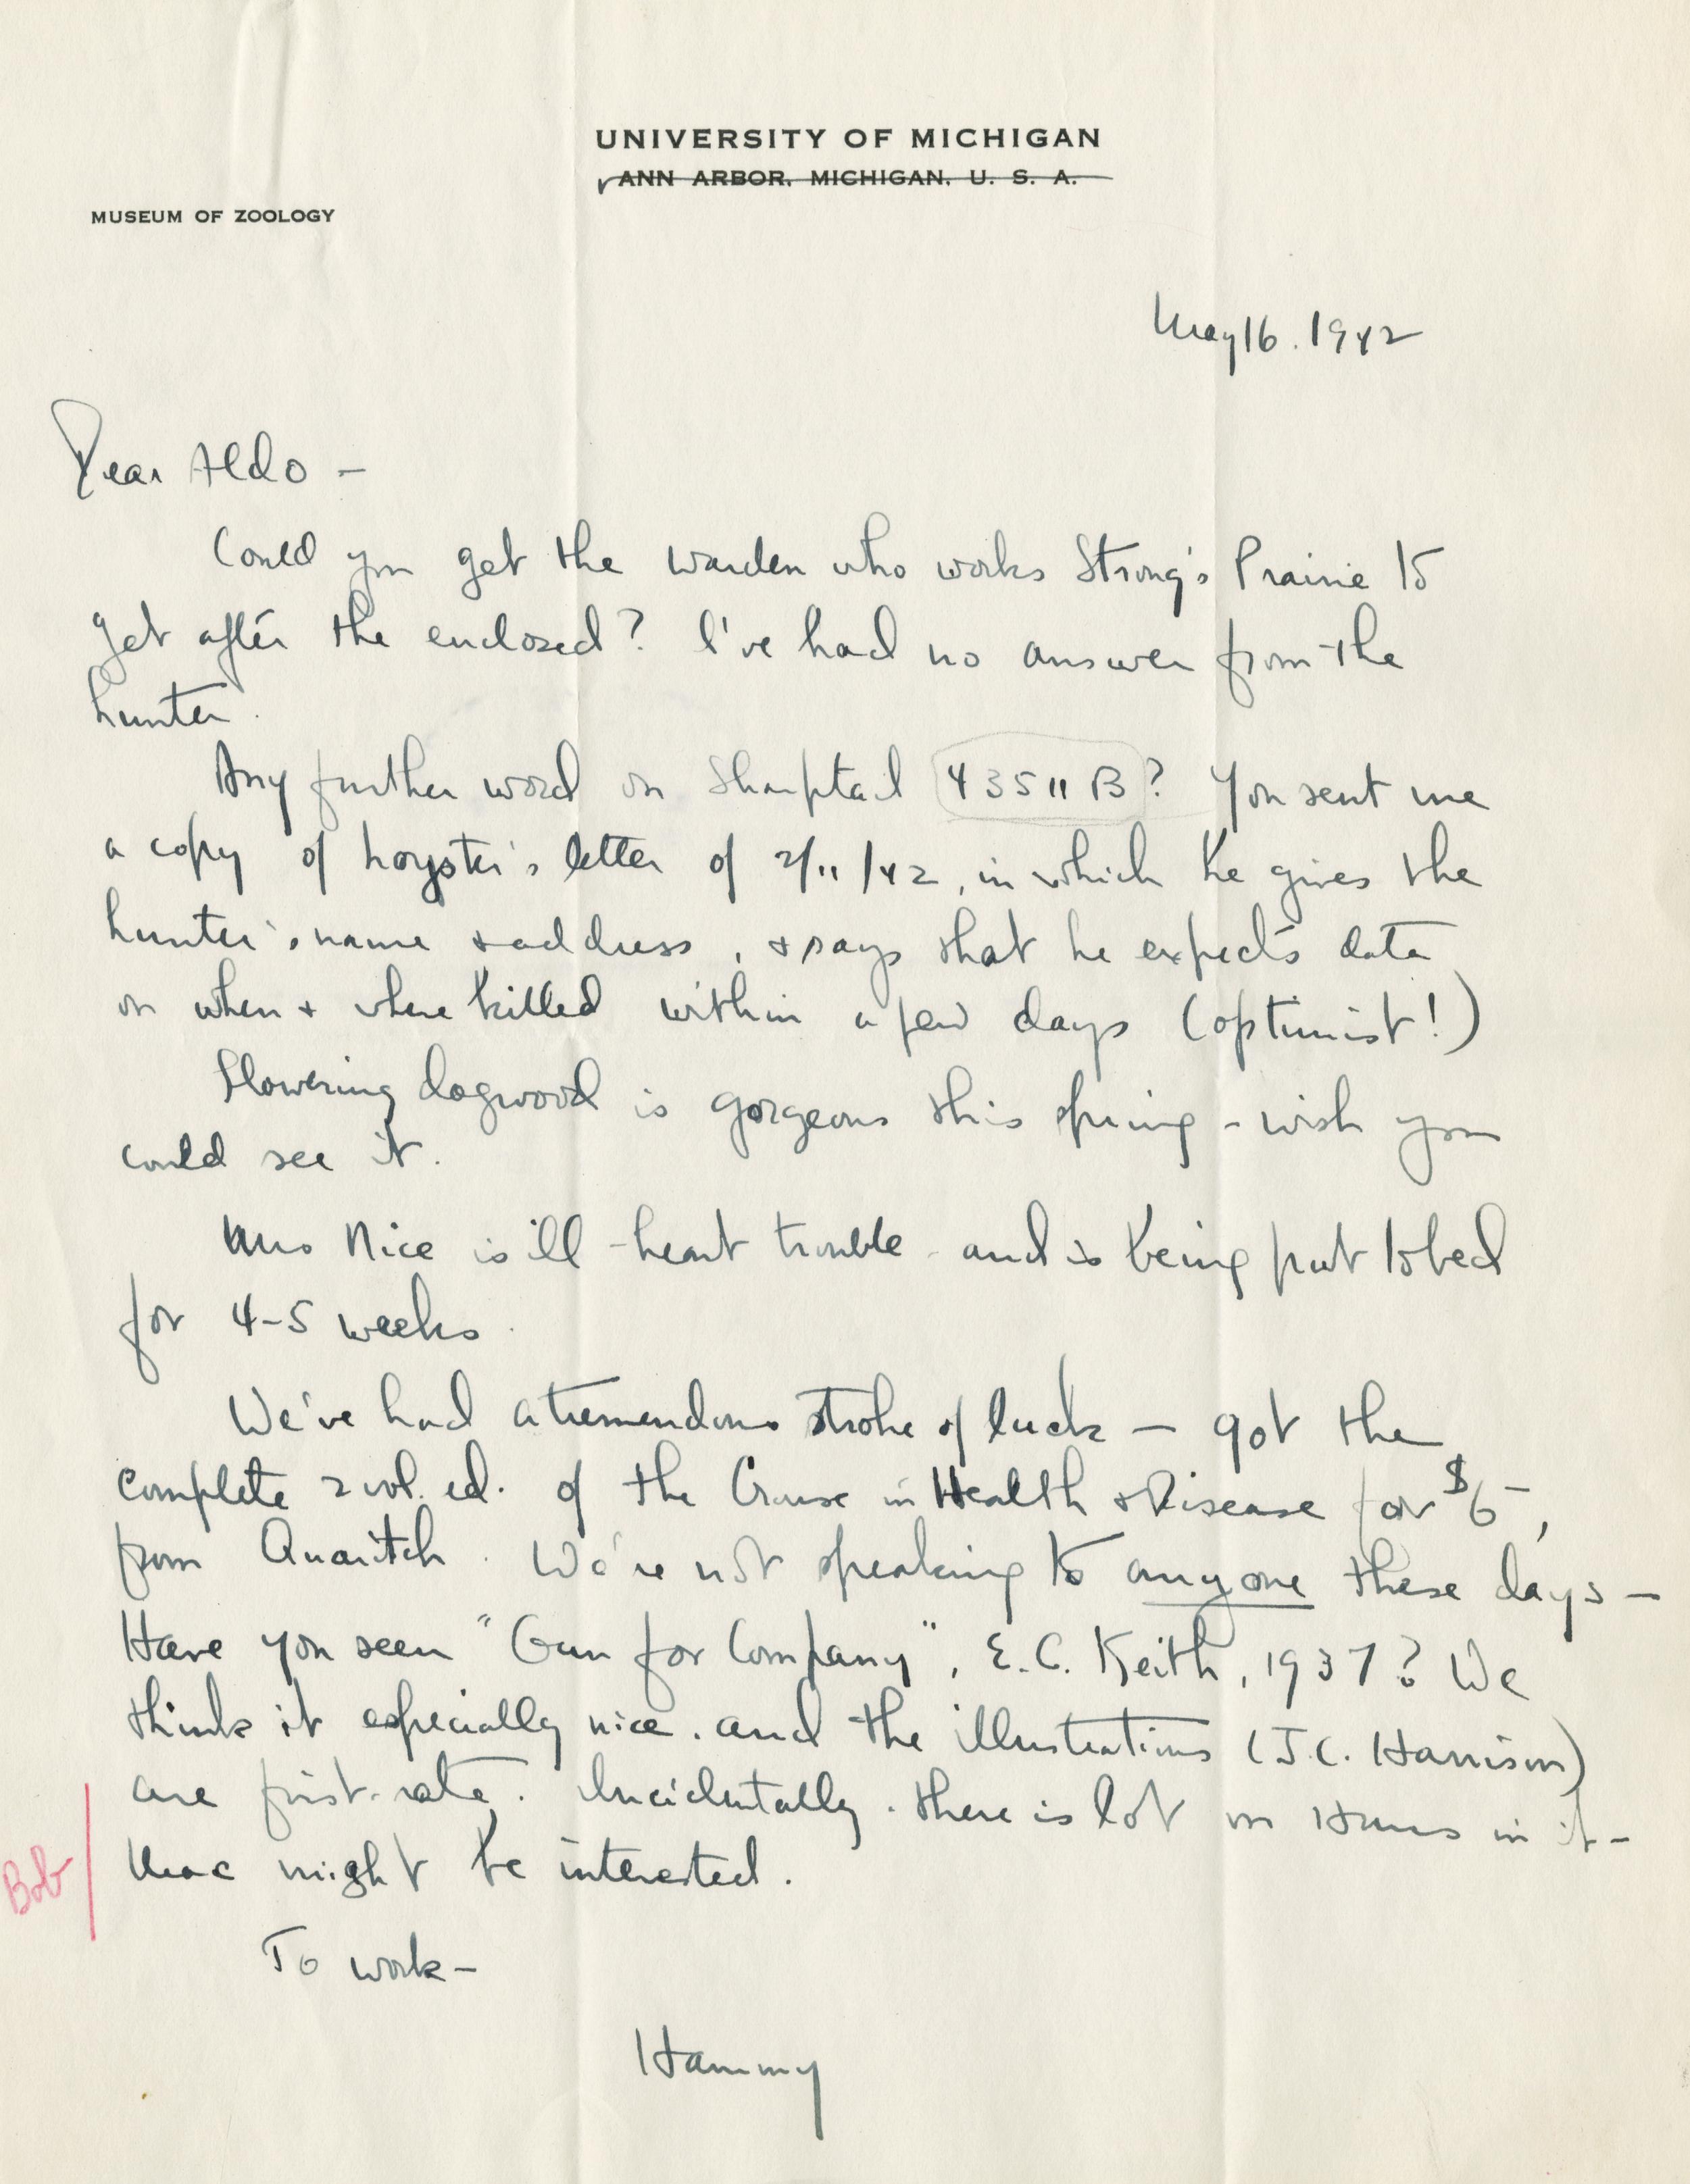 UNIVERSITY OF MICHIGAN
ANN ARBOR, MICHIGAN, U. S. A.
MUSEUM OF ZOOLOGY
May 16. 1942
Dear Aldo –
Could you get the warden who works Strong's Prairie to
get after the enclosed? I've had no answer from the
hunter.
Any further word on Sharptail 43511 B? You sent me
a copy of letter of 2/11/42, in which he gives the
hunter's name & address, & says that he expects data
on when & where killed within a few days (optimist!)
Flowering dogwood is gorgeous this spring – wish you
could see it.
Mrs Nice is ill – heart trouble – and is being put to bed
for 4–5 weeks.
We've had a tremendous stroke of luck – got the
complete 2 vol. ed. of the Grouse in Health & Disease for $6–,
from Quaritch. We're not speaking to anyone these days –
Have you seen "Gun for Company", E. C. Keith, 1937? We
think it especially nice. and the illustrations (J.C. Harrison)
are first-rate. Incidentally. there is lot on Huns in it –
Bob
Mac might be interested.
To work –
Hammy